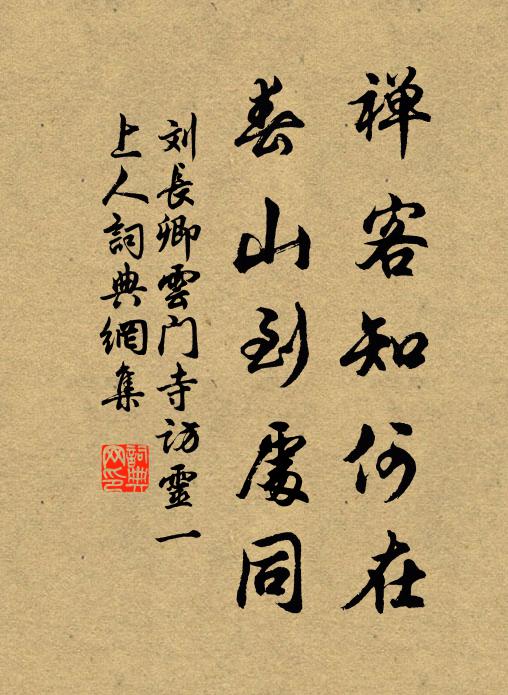 禅客知何在
春山到處同
刘長卿雲门寺访靈一
上人詞典網集
詞典
网印